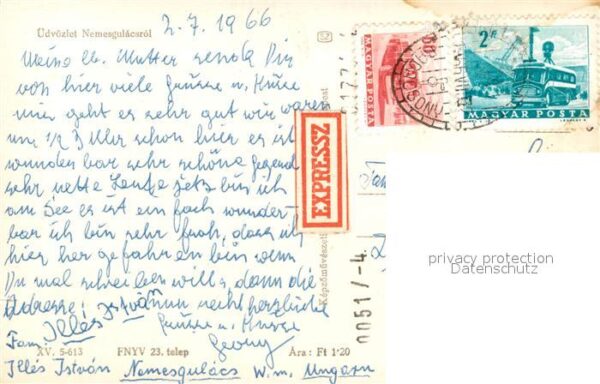 Üdvözlet Nemesgulácsról
2.7.1966
Meine lb. Mutter sende Dir
von hier viele Grüsse u. Küsse
mir geht es sehr gut wir waren
um 1/2 3 Uhr schon hier es ist
wunder bar sehr schöne gegend
sehr nette Leute jetz bin ich
am See es ist ein fach wunder-
bar ich bin sehr froh, dass ich
hier her gefahren bin wenn
Du mal schreiben wills, dann die
Adresse: István nun recht herzliche
Grüsse u. Küsse
Fam. Illés
Georg
XV. 5-613 FNYV 23. telep Ára: Ft 1·20
Illés István Nemesgulács W.m. Ungarn
EXPRESSZ
Képzőművészeti
0051/-4.
MAGYAR POSTA
2 Ft
MAGYAR POSTA
privacy protection
Datenschutz